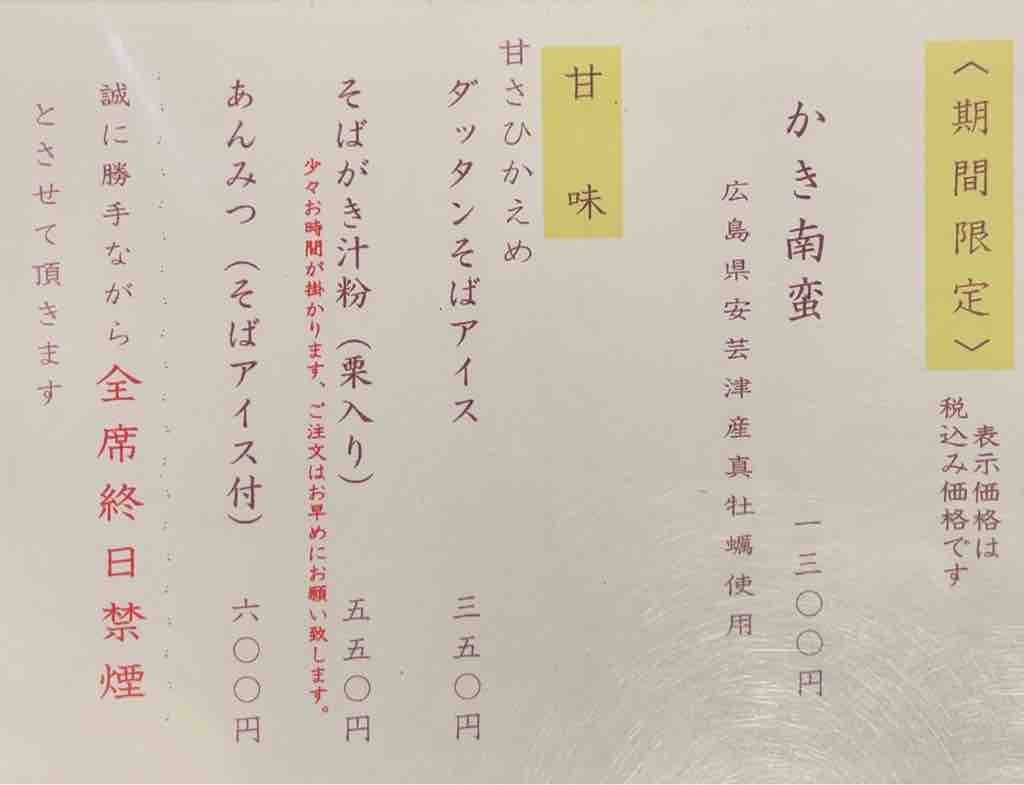 〈期間限定〉
表示価格は
税込み価格です
かき南蛮 一三〇〇円
広島県安芸津産真牡蠣使用
甘味
甘さひかえめ
ダッタンそばアイス 三五〇円
そばがき汁粉（栗入り） 五五〇円
少々お時間が掛かります、ご注文はお早めにお願い致します。
あんみつ（そばアイス付） 六〇〇円
誠に勝手ながら全席終日禁煙
とさせて頂きます